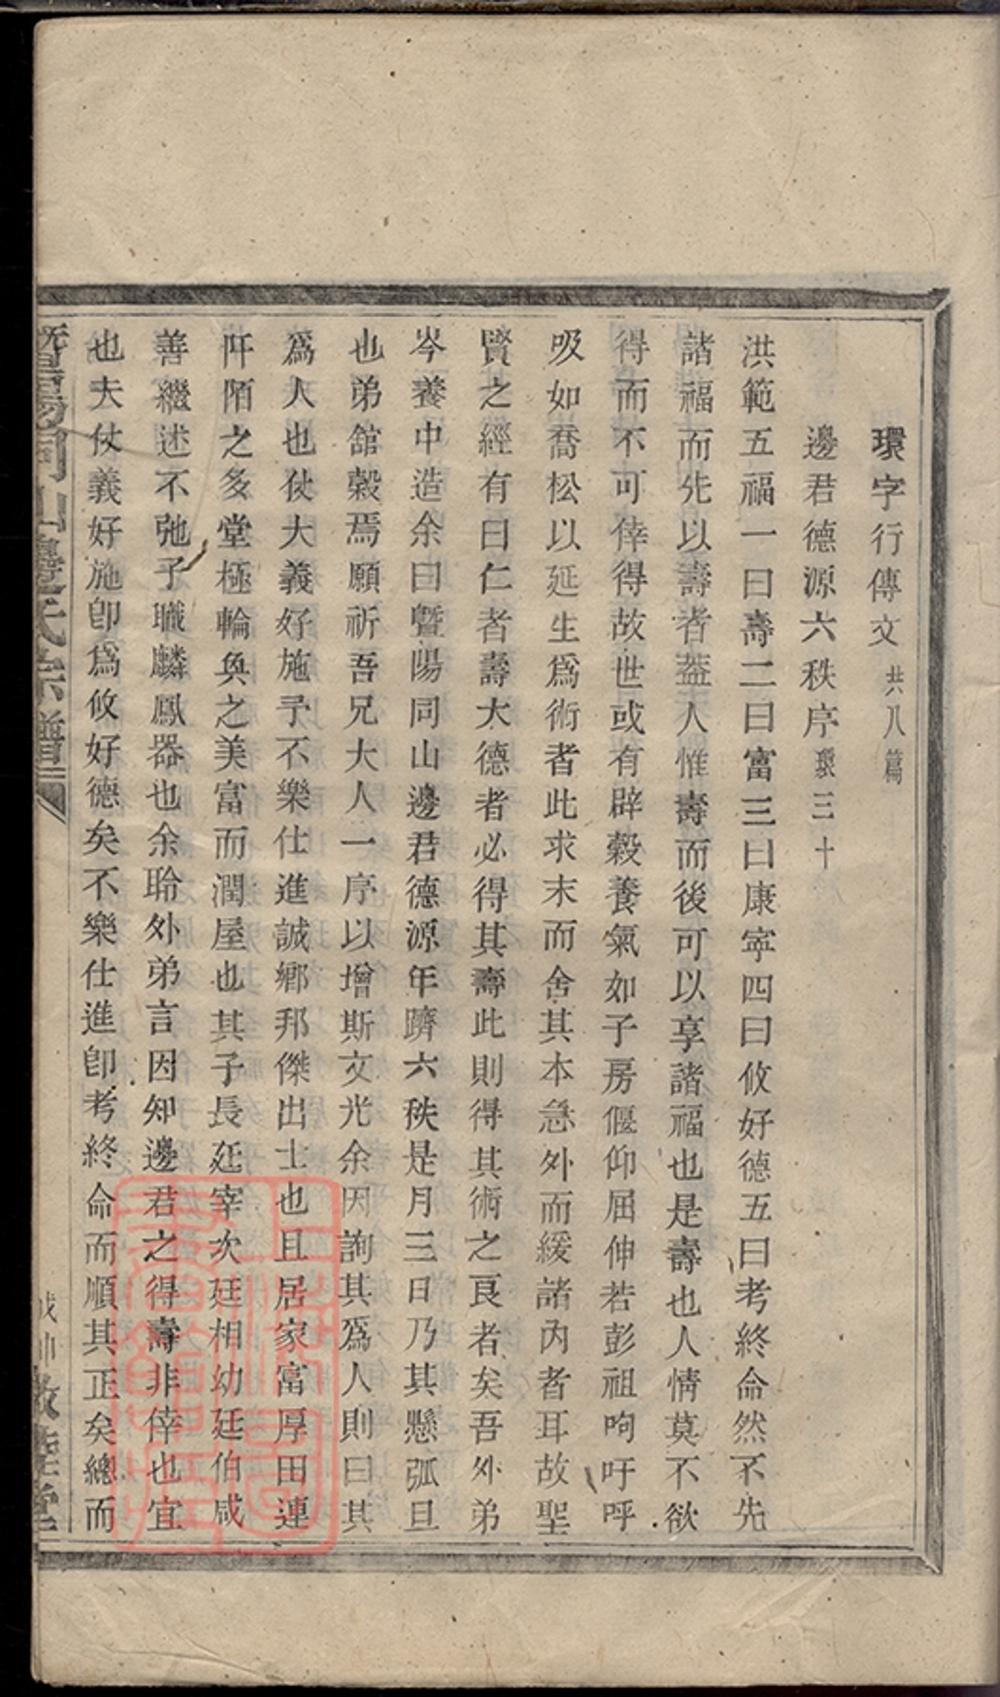 環字行傳文共八篇
邊君德源六秩序 環三十
洪範五福一曰壽二曰富三曰康寧四曰攸好德五曰考終命然不先
諸福而先以壽者葢人惟壽而後可以享諸福也是壽也人情莫不欲
得而不可倖得故世或有辟穀養氣如子房偃仰屈伸若彭祖呴吁呼
吸如喬松以延生爲術者此求末而舍其本急外而緩諸內者耳故聖
賢之經有曰仁者壽大德者必得其壽此則得其術之良者矣吾外弟
岑養中造余曰曁陽同山邊君德源年躋六秩是月三日乃其懸弧旦
也弟舘穀焉願祈吾兄大人一序以增斯文光余因詢其爲人則曰其
爲人也仗大義好施予不樂仕進誠鄉邦傑出士也且居家富厚田連
阡陌之多堂極輪奐之美富而潤屋也其子長廷宰次廷相幼廷伯咸
善繼述不弛子職麟鳳器也余聆外弟言因知邊君之得壽非倖也宜
也夫仗義好施卽爲攸好德矣不樂仕進卽考終命而順其正矣總而
曁陽同山邊氏宗譜
敘倫堂